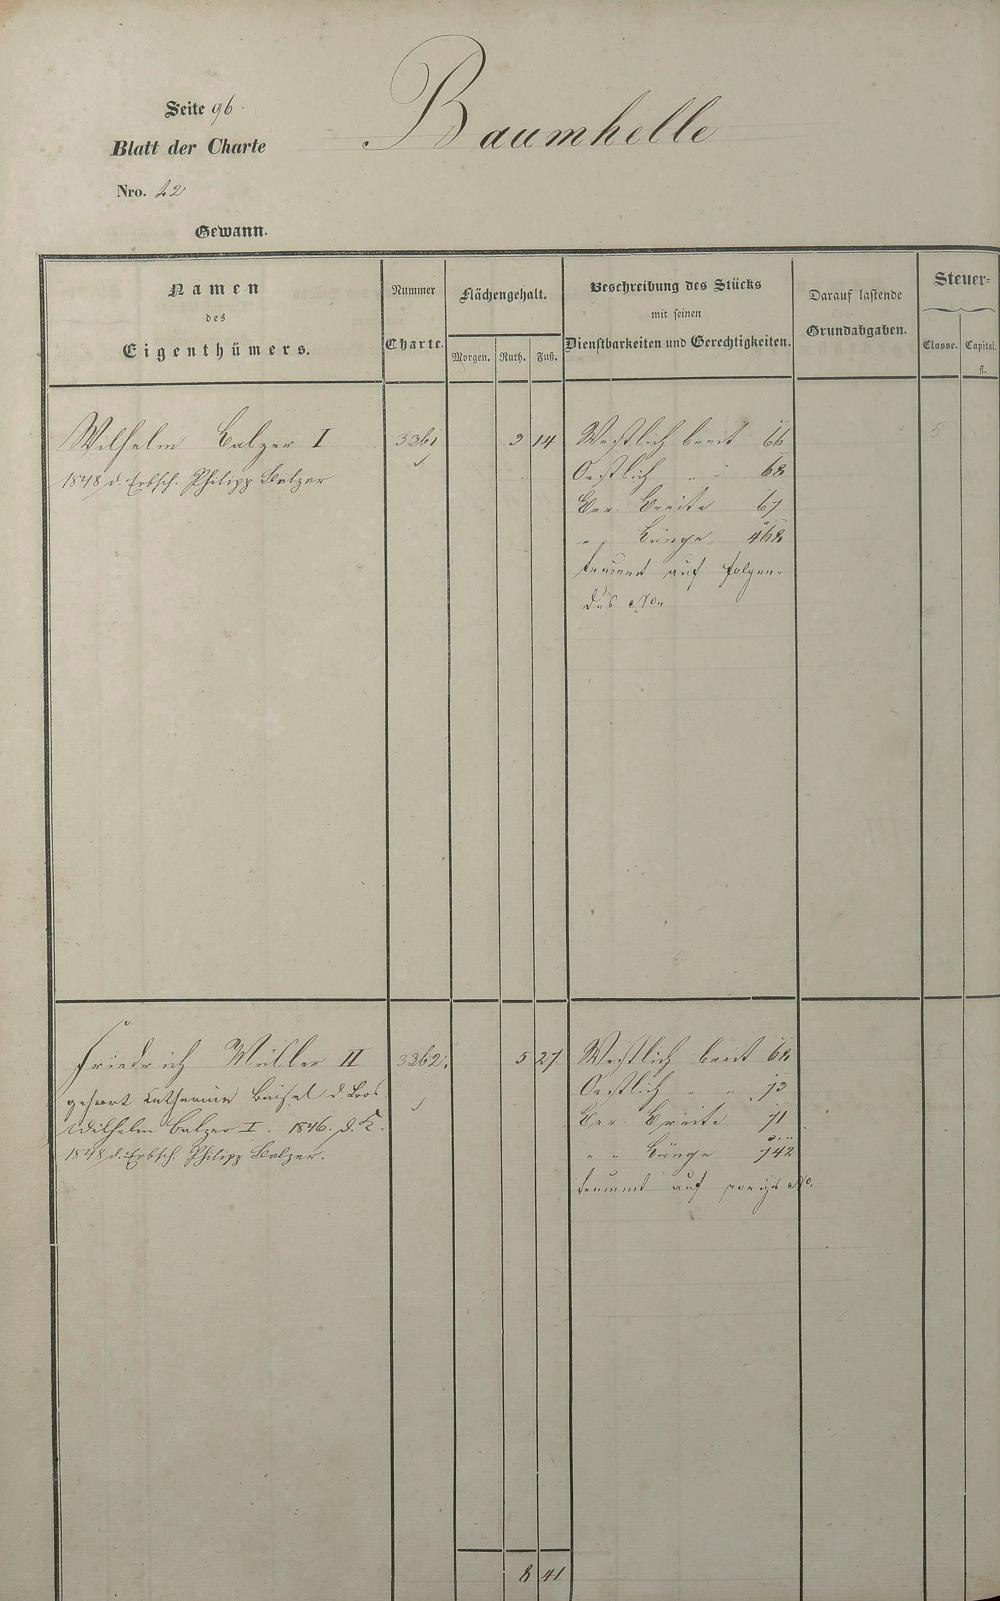 Seite 96.
Baumhelle
Blatt der Charte
Nro. 42
Gewann.
Namen
des
Eigenthümers.
Nummer
Charte.
Flächengehalt.
Morgen. Ruth. Fuß.
Beschreibung des Stücks
mit seinen
Dienstbarkeiten und Gerechtigkeiten.
Darauf lastende
Grundabgaben.
Steuer-
Classe. Capital.
fl.
Wilhelm Balzer I 3361 3 14 Westlich breit 66 5
1848 d. Erbsch. Philipp Balzer Oestlich " " 68
Ver. Breite 67
" Länge 468
kommt auf folgen-
des No.
Friedrich Müller II 3362. 5 27. Westlich breit 68
gehört Katharine d. Loos Oestlich " " 73
Wilhelm Balzer I. 1846. d. K. Ver. Breite 71
1848 d. Erbsch. Philipp Balzer. " " Länge 742
kommt auf vorigs No.
8 41